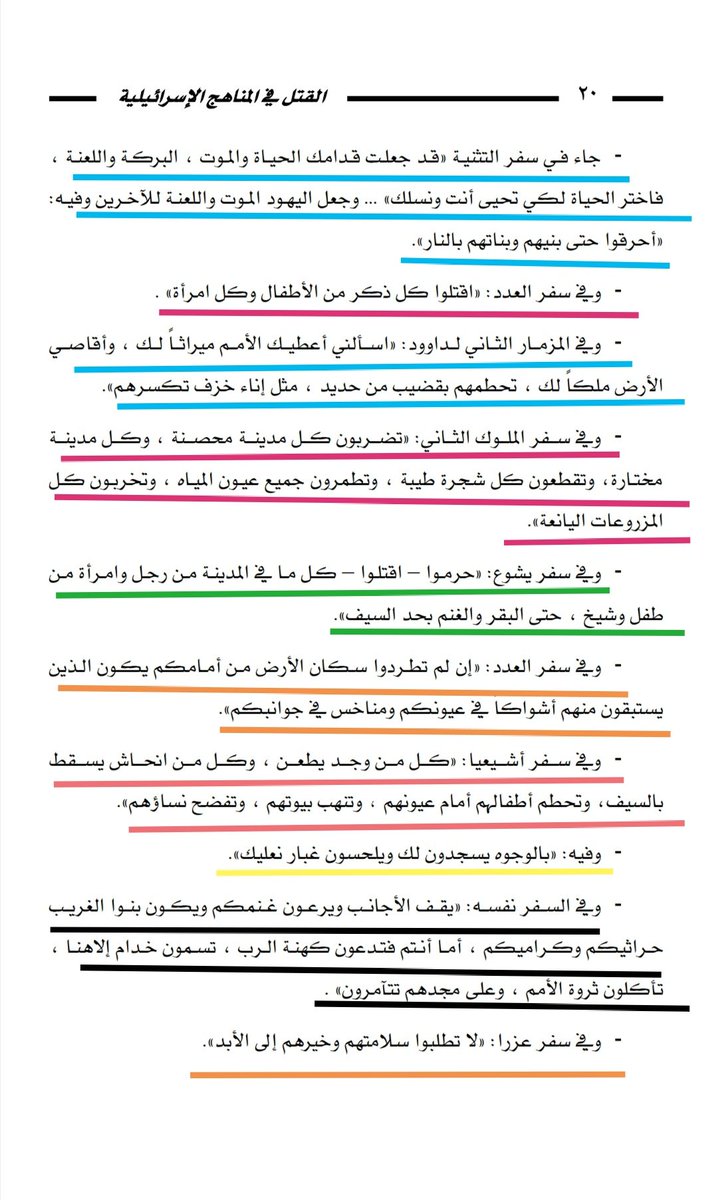 ٢٠ القتل في المناهج الإسرائيلية
- جاء في سفر التثنية «قد جعلت قدامك الحياة والموت ، البركة واللعنة ،
فاختر الحياة لكي تحيى أنت ونسلك» ... وجعل اليهود الموت واللعنة للآخرين وفيه:
«أحرقوا حتى بنيهم وبناتهم بالنار».
- وفي سفر العدد: «اقتلوا كل ذكر من الأطفال وكل امرأة» .
- وفي المزمار الثاني لداوود: «اسألني أعطيك الأمم ميراثاً لك ، وأقاصي
الأرض ملكاً لك ، تحطمهم بقضيب من حديد ، مثل إناء خزف تكسرهم».
- وفي سفر الملوك الثاني: «تضربون كل مدينة محصنة ، وكل مدينة
مختارة، وتقطعون كل شجرة طيبة ، وتطمرون جميع عيون المياه ، وتخربون كل
المزروعات اليانعة».
- وفي سفر يشوع: «حرموا – اقتلوا – كل ما في المدينة من رجل وامرأة من
طفل وشيخ ، حتى البقر والغنم بحد السيف».
- وفي سفر العدد: «إن لم تطردوا سكان الأرض من أمامكم يكون الذين
يستبقون منهم أشواكاً في عيونكم ومناخس في جوانبكم».
- وفي سفر أشيعيا: «كل من وجد يطعن ، وكل من انحاش يسقط
بالسيف، وتحطم أطفالهم أمام عيونهم ، وتنهب بيوتهم ، وتفضح نساؤهم».
- وفيه: «بالوجوه يسجدون لك ويلحسون غبار نعليك».
- وفي السفر نفسه: «يقف الأجانب ويرعون غنمكم ويكون بنوا الغريب
حراثيكم وكراميكم ، أما أنتم فتدعون كهنة الرب ، تسمون خدام إلاهنا ،
تأكلون ثروة الأمم ، وعلى مجدهم تتآمرون» .
- وفي سفر عزرا: «لا تطلبوا سلامتهم وخيرهم إلى الأبد».